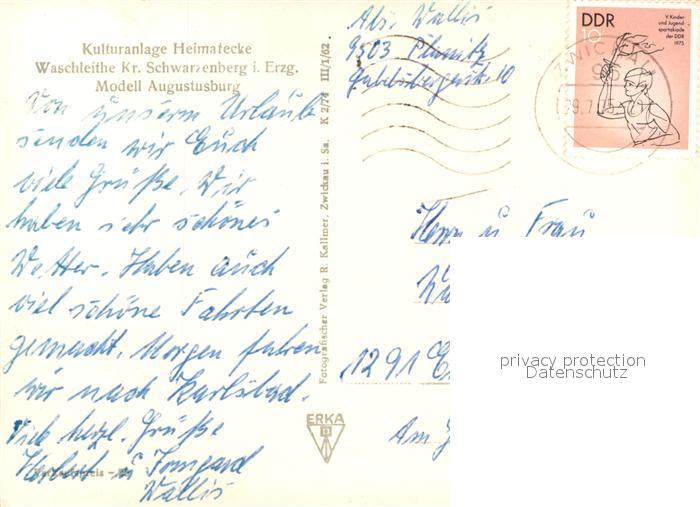 Kulturanlage Heimatecke
Waschleithe Kr. Schwarzenberg i. Erzg.
Modell Augustusburg
Von unserm Urlaub
senden wir Euch
viele Grüße. Wir
haben sehr schönes
Wetter. Haben auch
viel schöne Fahrten
gemacht. Morgen fahren
wir nach Karlsbad.
Viele herzl. Grüße
Herbert u Irmgard
Wallis
Verkaufspreis
Fotografischer Verlag R. Kallmer, Zwickau i. Sa. K 2/74 III/1/62.
ERKA
Abs. Wallis
9503 Planitz
10
DDR
10
V. Kinder-
und Jugend-
spartakiade
der DDR
1975
ZWICKAU
95
29.7.75
Herrn u Frau
1291
Am
privacy protection
Datenschutz